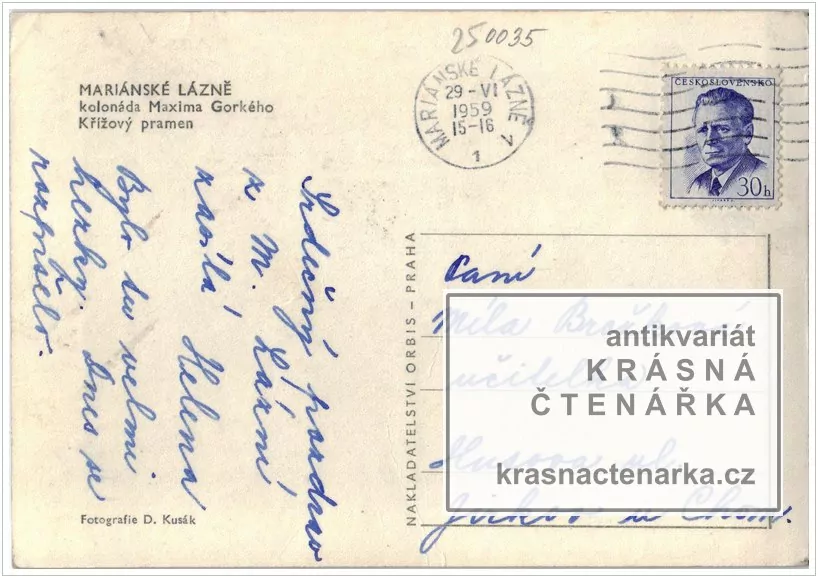 250035
MARIÁNSKÉ LÁZNĚ
kolonáda Maxima Gorkého
Křížový pramen
MARIÁNSKÉ LÁZNĚ 1
29-VI
1959
15-16
1
ČESKOSLOVENSKO
30h
Srdečný pozdrav
z M. Lázní
zasílá Helena
Bylo tu velmi
hezky. Dnes se
rozpršelo.
NAKLADATELSTVÍ ORBIS – PRAHA
Paní
Míla
učitelka
Husova ul.
u Chom.
antikvariát
KRÁSNÁ
ČTENÁŘKA
krasnactenarka.cz
Fotografie D. Kusák